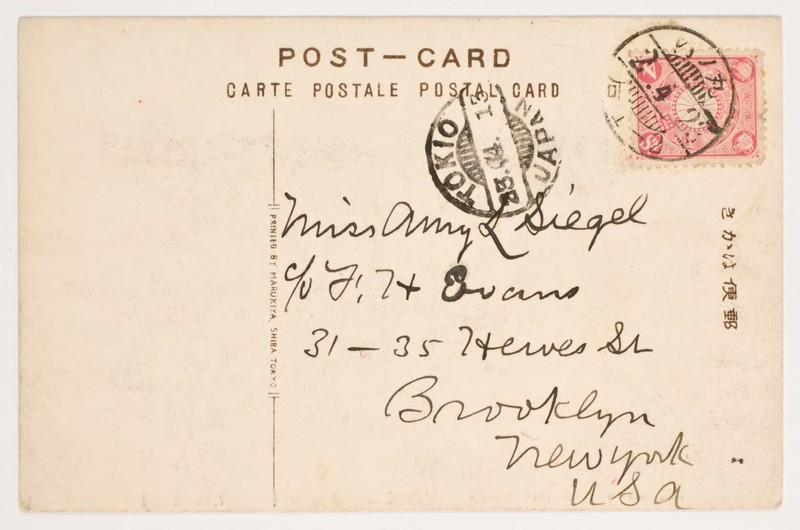 POST—CARD
CARTE POSTALE POSTAL CARD
TOKIO
JAPAN
Miss Amy L Siegel
c/o F. H Evans
31-35 Hewes St
Brooklyn
New york
USA
PRINTED BY MARUKIYA, SHIBA TOKYO
きかは便郵